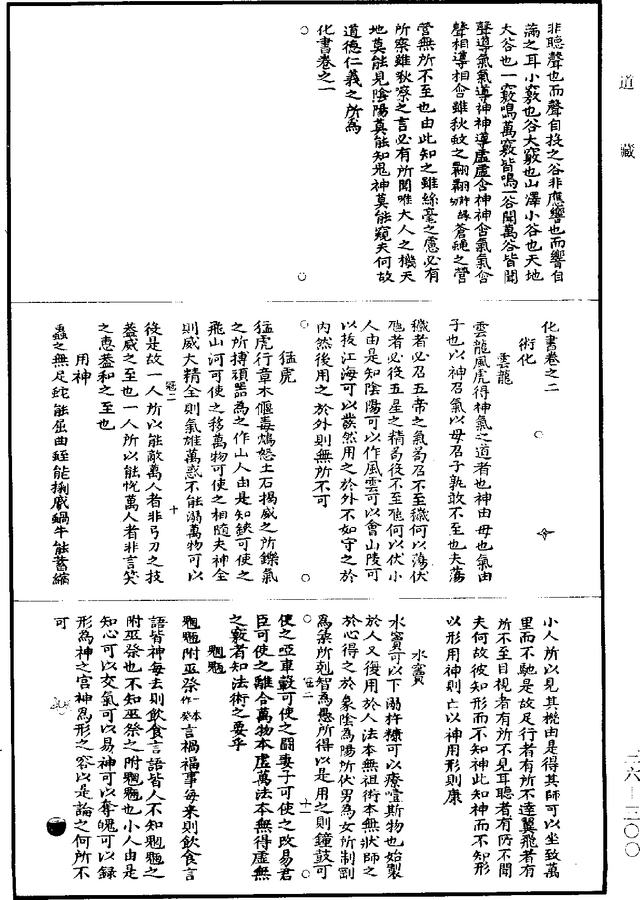 道藏
非聽聲也而聲自投之谷非應響也而響自
滿之耳小竅也谷大竅也山澤小谷也天地
大谷也一竅鳴萬竅皆鳴一谷聞萬谷皆聞
聲導氣氣導神神導虛虛含神神含氣氣含
聲聲相導相含雖秋蚊之翾翾蒼蠅之營
營無所不至也由此知之雖絲毫之慮必有
所察雖秋嘹之言必有所聞唯大人之機天
地莫能見陰陽莫能知鬼神莫能窺夫何故
道德仁義之所為
化書卷之一
化書卷之二
術化
雲龍
雲龍風虎得神氣之道者也神由母也氣由
子也以神召氣以母召子孰敢不至也夫蕩
穢者必召五帝之氣苟召不至穢何以蕩伏
虺者必役五星之精苟役不至虺何以伏小
人由是知陰陽可以作風雲可以會山陵可
以拔江海可以發然用之於外不如守之於
內然後用之於外則無所不可
猛虎
猛虎行草木偃毒鴆怒土石揭威之所鑠氣
之所搏頑嚚為之作山人由是知鋏可使之
飛山河可使之移萬物可使之相隨夫神全
則威大精全則氣雄萬惑不能溺萬物可以
役是故一人所以能敵萬人者非弓刀之技
蓋威之至也一人所以能悅萬人者非言笑
之惠蓋和之至也
用神
蟲之無足蛇能屈曲蛭能掬蹙蝸牛能蓄縮
小人所以見其機由是得其師可以坐致萬
里而不馳是故足行者有所不達翼飛者有
所不至目視者有所不見耳聽者有所不聞
夫何故彼知形而不知神此知神而不知形
以形用神則亡以神用形則康
水竇
水竇可以下溺杵糠可以療噎斯物也始製
於人又復用於人法本無祖術本無狀師之
於心得之於象陰為陽所伏男為女所制剛
為柔所剋智為愚所得以是用之則鐘鼓可
使之啞車轂可使之鬪妻子可使之改易君
臣可使之離合萬物本虛萬法本無得虛無
之竅者知法術之要乎
魍魎
魍魎附巫祭言禍福事每來則飲食言
語皆神每去則飲食言語皆人不知魍魎之
附巫祭也不知巫祭之附魍魎也小人由是
知心可以交氣可以易神可以奪魄可以錄
形為神之宮神為形之容以是論之何所不
可